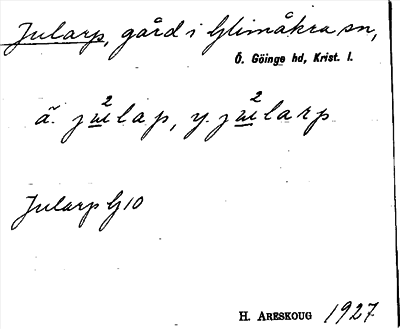 Jularp, gård i Glimåkra sn,
Ö. Göinge hd, Krist. l.
ä. jularp, y. jularp
Jularp G 10
H. ARESKOUG 1927